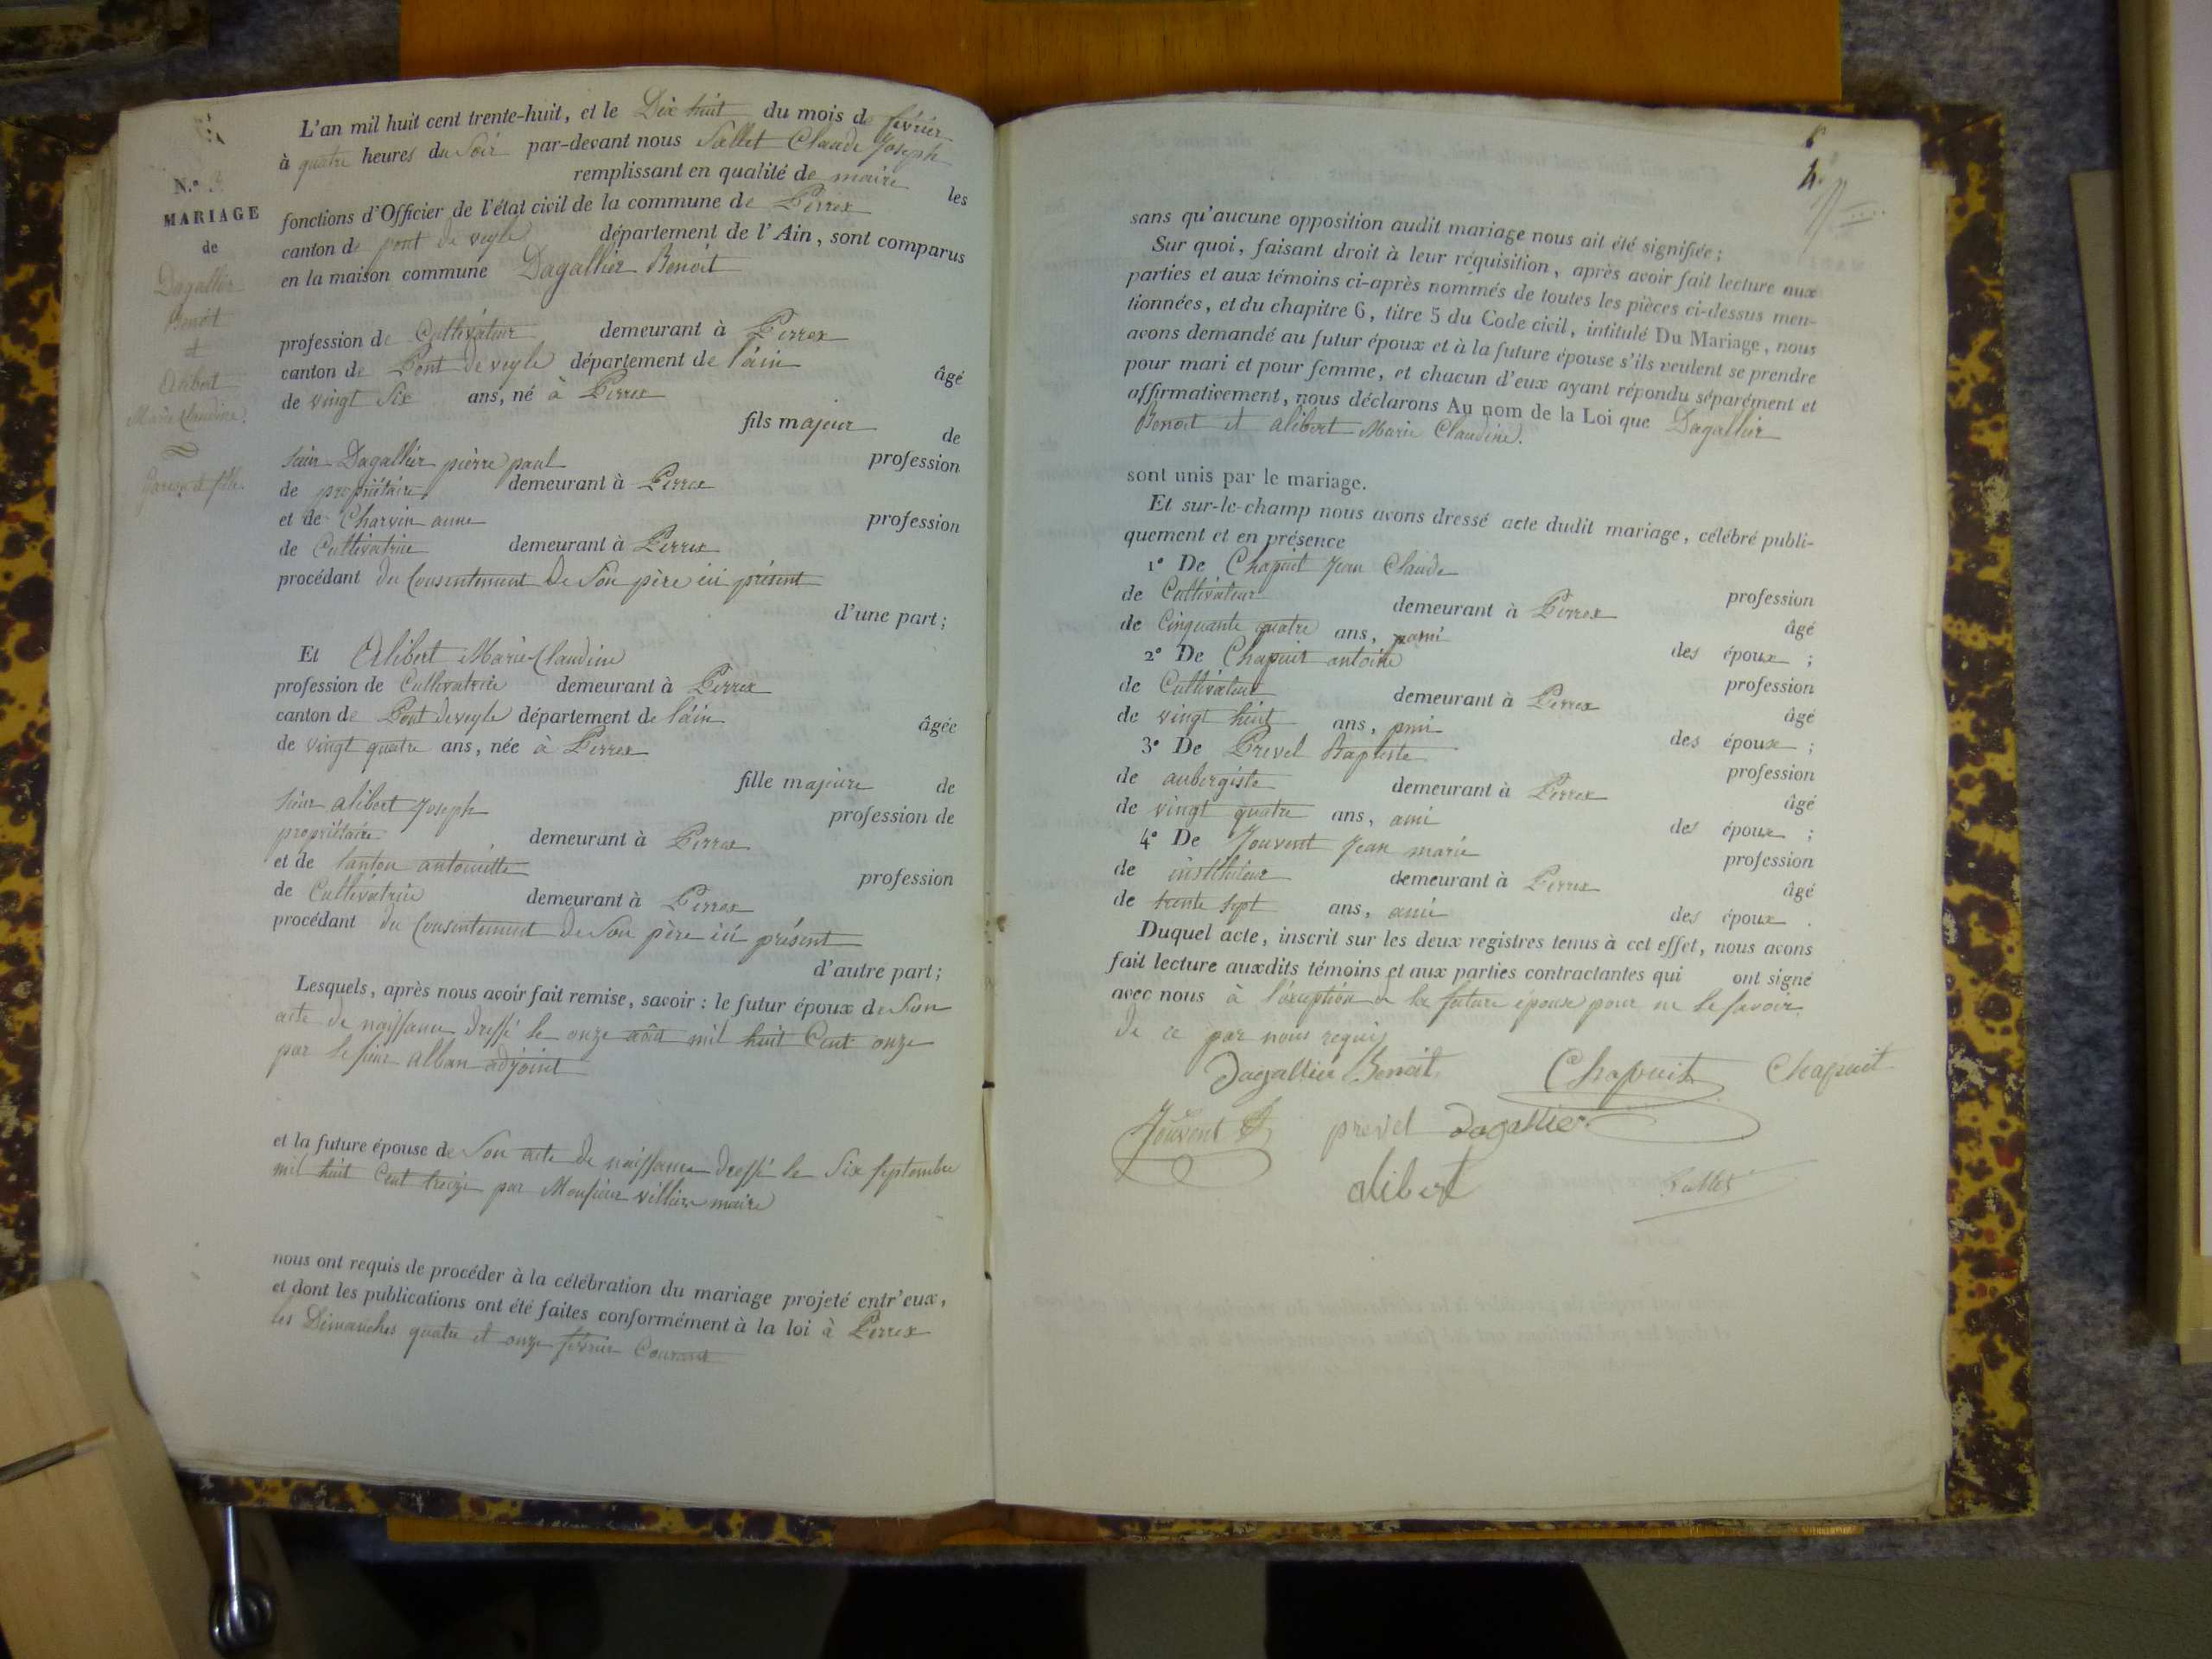 N.° 3
MARIAGE
de
Dagallier
Benoit
et
Alibert
Marie Claudine.
Garçon et fille
L'an mil huit cent trente-huit, et le Dix huit du mois de février
à quatre heures du Soir par-devant nous Sallet Claude Joseph
remplissant en qualité de maire les
fonctions d'Officier de l'état civil de la commune de Perrex
canton de pont de veyle département de l'Ain, sont comparus
en la maison commune Dagallier Benoit
profession de Cultivateur demeurant à Perrex
canton de Pont de veyle département de l'ain âgé
de vingt Six ans, né à Perrex
fils majeur de
Sieur Dagallier pierre paul profession
de propriétaire demeurant à Perrex
et de Charvin anne profession
de Cultivatrice demeurant à Perrex
procédant du Consentement De Son père ici présent
d'une part;
Et Alibert Marie Claudine
profession de Cultivatrice demeurant à Perrex
canton de Pont de veyle département de l'ain âgée
de vingt quatre ans, née à Perrex
fille majeure de
Sieur alibert Joseph profession de
propriétaire demeurant à Perrex
et de tanton antoinette profession
de Cultivatrice demeurant à Perrex
procédant du Consentement de Son père ici présent
d'autre part;
Lesquels, après nous avoir fait remise, savoir : le futur époux de Son
acte de naissance dressé le onze août mil huit Cent onze
par le sieur alban adjoint
et la future épouse de Son acte de naissance dressé le Six septembre
mil huit Cent treize par Monsieur maire
nous ont requis de procéder à la célébration du mariage projeté entr'eux,
et dont les publications ont été faites conformément à la loi à Perrex
les Dimanches quatre et onze février Courant
4
sans qu'aucune opposition audit mariage nous ait été signifiée;
Sur quoi, faisant droit à leur réquisition, après avoir fait lecture aux
parties et aux témoins ci-après nommés de toutes les pièces ci-dessus men-
tionnées, et du chapitre 6, titre 5 du Code civil, intitulé Du Mariage, nous
avons demandé au futur époux et à la future épouse s'ils veulent se prendre
pour mari et pour femme, et chacun d'eux ayant répondu séparément et
affirmativement, nous déclarons Au nom de la Loi que Dagallier
Benoit et alibert Marie Claudine.
sont unis par le mariage.
Et sur-le-champ nous avons dressé acte dudit mariage, célébré publi-
quement et en présence
1° De Chapuit Jean Claude profession
de Cultivateur demeurant à Perrex âgé
de Cinquante quatre ans, ami des époux ;
2° De Chapuit antoine profession
de Cultivateur demeurant à Perrex âgé
de vingt huit ans, ami des époux ;
3° De Prevel Baptiste profession
de aubergiste demeurant à Perrex âgé
de vingt quatre ans, ami des époux ;
4° De Jouvent Jean marie profession
de instituteur demeurant à Perrex âgé
de trente sept ans, ami des époux .
Duquel acte, inscrit sur les deux registres tenus à cet effet, nous avons
fait lecture auxdits témoins et aux parties contractantes qui ont signé
avec nous à l'éxception de la future épouse pour ne le savoir
de ce par nous requis
Dagallier Benoit Chapuit Chapuit
Jouvent prevel Dagallier
alibert Sallet